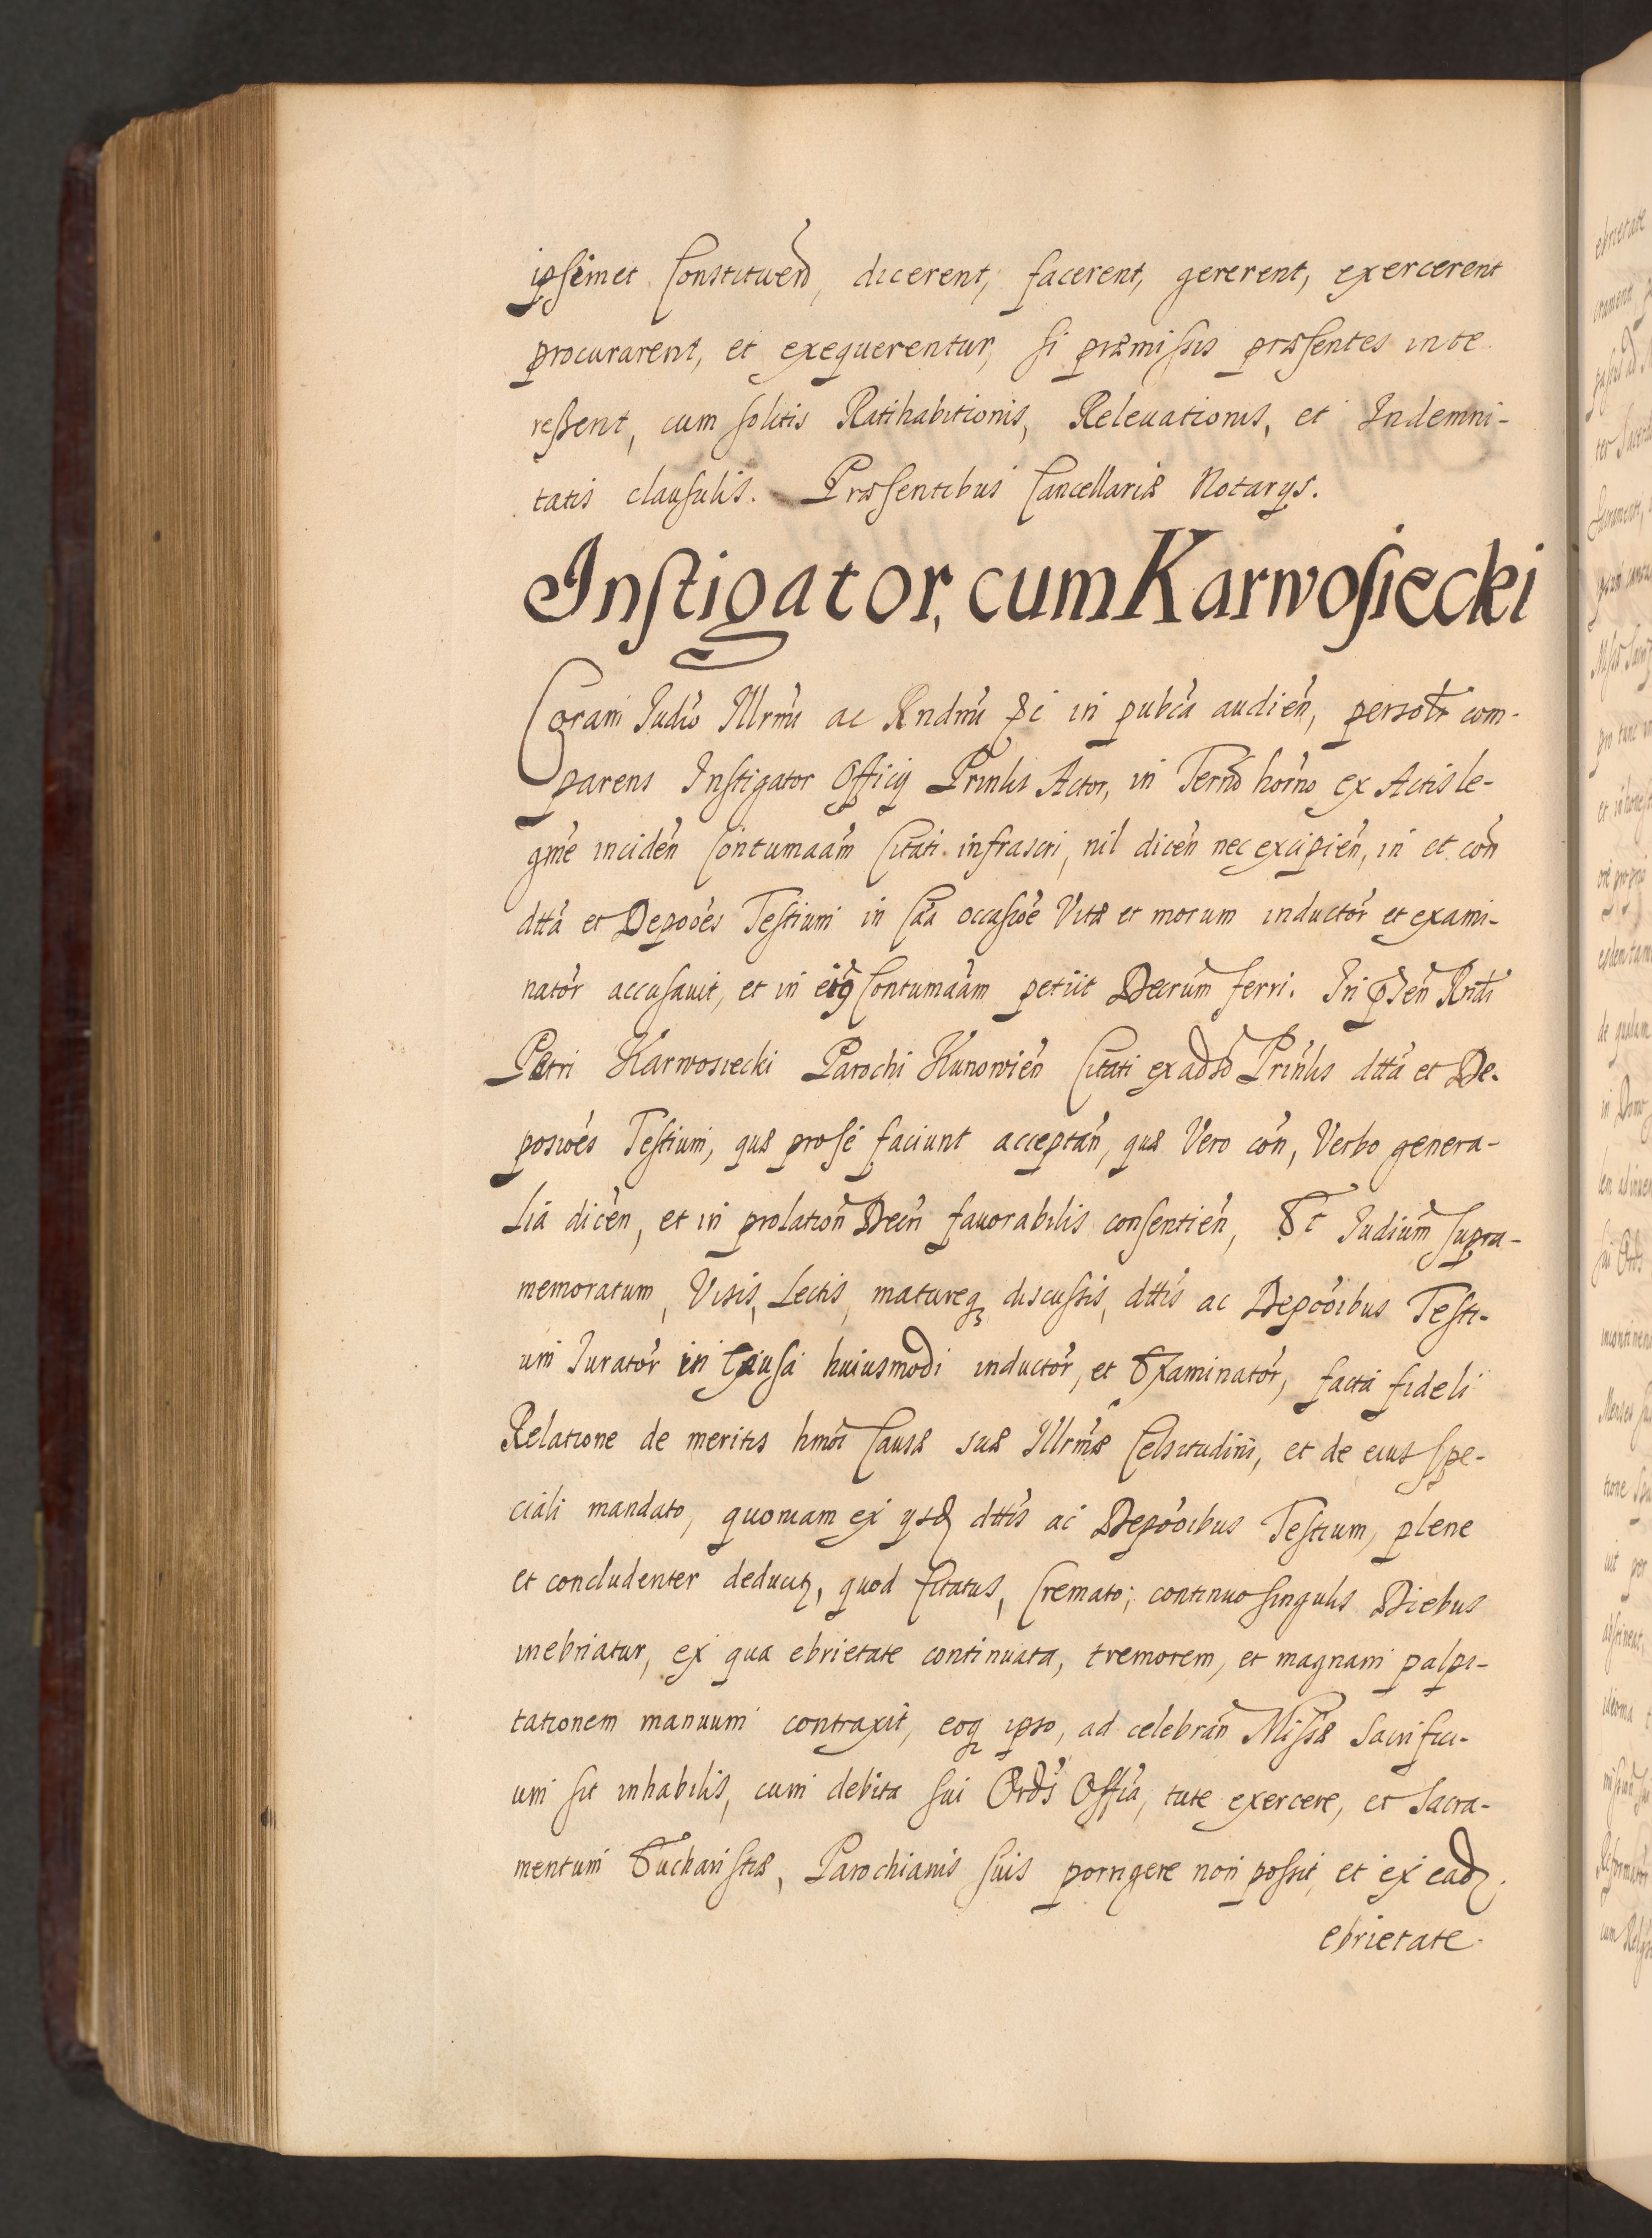 ipsemet Constituen̄, dicerent, facerent, gererent, exercerent
procurarent, et exequerentur, si præmissis præsentes inte
reßent, cum solitis Ratihabitionis, Releuationis, et Indemni-
tatis clausulis. Præsentibus Cancellariæ Notarys.
Instigator, cum Karwosiecki
Coram Judio Illrm̄i ac Rndm̄i pc in pubc̄a audien̄, persotr com-
parens Instigator Officij Prinlis Actor, in Termo horno ex Actis le-
gme inciden̄ Contumaam̄ Citati infrascri, nil dicen̄ nec excipien̄, in et con̄
dtta et Depoo̅es Testium in Caa occasioe Vitæ et morum inductor̄ et exami-
nator̄ accusauit, et in eiq Contumaam̄ petiit Decrum̄ ferri. In pñen̄ Rndi
Petri Karwosiecki Parochi Kunowien̄ Citati ex adso Prinlis dtta et De-
posioes Testium, quæ pro se faciunt acceptan̄, quæ Vero con̄, Verbo genera-
lia dicen̄, et in prolation̄ Decri fauorabilis consentien̄, Et Judium̄ supra-
memoratum, Visis, Lectis, matureq discussis, dttis ac Depoo̅ibus Testi-
um Jurator̄ in Causa huiusmodi inductor̄, et Examinator̄, facta fideli
Relatione de meritis hmoi Causæ suæ Illrmæ Celsitudini, et de eius spe-
ciali mandato, quoniam ex ysd dttis ac Depoo̅ibus Testium, plene
et concludenter deducit, quod Citatus, Cremato; continuo singulis Diebus
inebriatur, ex qua ebrietate continuata, tremorem, et magnam palpi-
tationem manuum contraxit, eoq ipso, ad celebran̄ Missæ sacrifici-
um sit inhabilis, cum debita sui Ordis Officia, tute exercere, et Sacra-
mentum Eucharistiæ, Parochianis suis porrigere non possit, et ex ead
ebrietate